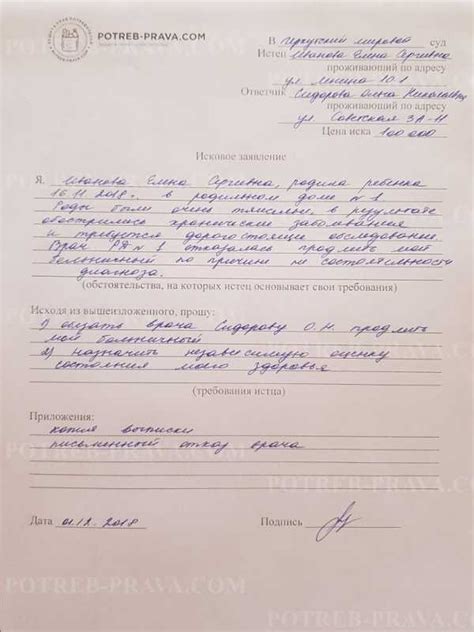 POTREB-PRAVA.COM
В Иркутский мировой суд
Истец Иванова Елена Сергивна
проживающий по адресу
ул. Ленина 10-1
Ответчик Сидорова Ольга Николаевна
проживающий по адресу
ул. Советская 3А-11
Цена иска 100 000
Исковое заявление
Я, Иванова Елена Сергивна, родила ребенка
16.11.2018г. в родильном доме №1
Роды были очень тяжелыми, в результате
обострились хронические заболевания
и требуется дорогостоящее обследование.
Врач РД №1 отказалась продлить мой
больничный по причине не состоятельности
диагноза.
(обстоятельства, на которых истец основывает свои требования)
Исходя из вышеизложенного, прошу:
1) обязать врача Сидорову О.Н. продлить
мой больничный
2) назначить независимую оценку
состояния моего здоровья
(требования истца)
Приложения:
копия выписки
письменный отказ врача
Дата 01.12.2018 Подпись
POTREB-PRAVA.COM